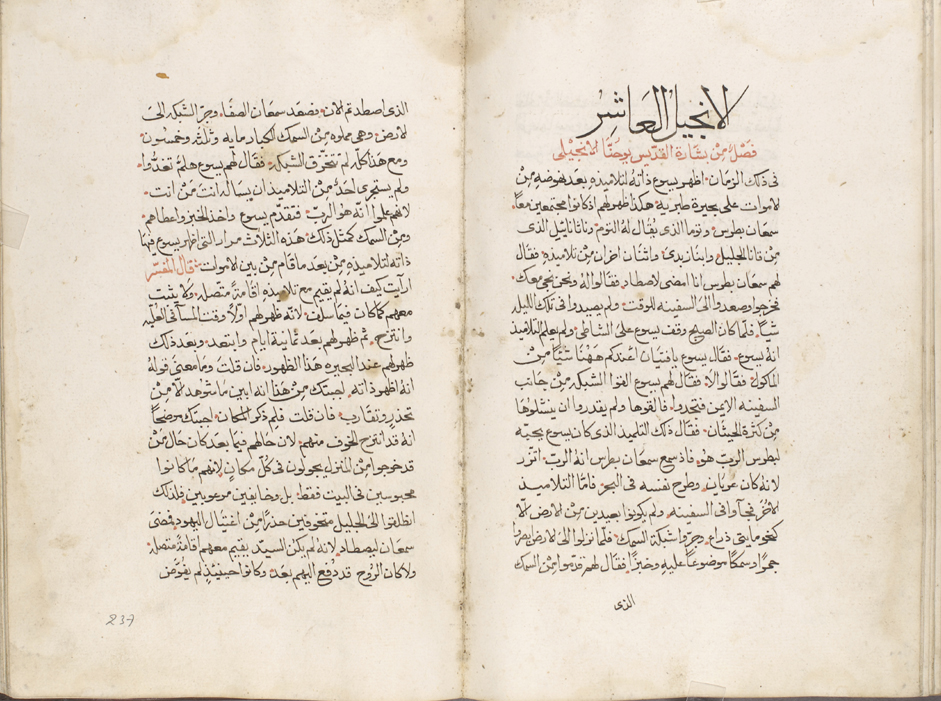 الانجيل العاشر
فصل من بشارة القديس يوحنا الانجيلى
فى ذلك الزمان اظهر يسوع ذاته لتلاميذه بعد نهوضه من
الاموات على بحيرة طبريه هكذا ظهر لهم اذ كانوا مجتمعين معاً
سمعان بطرس وتوما الذى يقال له التوم وناثانايل الذى
من قانا الجليل وابنا زبدى واثنان اخران من تلاميذه فقال
لهم سمعان بطرس انا امضى لاصطاد فقالوا له ونحن نجى معك
فخرجوا وصعدوا الى السفينه للوقت ولم يصيدوا فى تلك الليله
شياً فلما كان الصبح وقف يسوع على الشاطى ولم يعلم التلاميذ
انه يسوع فقال يسوع يا فتيان اعندكم ههنا شياً من
الماكول فقالوا لا فقال لهم يسوع القوا الشبكه من جانب
السفينه الايمن فتجدوا فالقوها ولم يقدروا ان ينشلوها
من كثرة الحيتان فقال ذلك التلميذ الذى كان يسوع يحبه
لبطرس الرب هو فاذ سمع سمعان بطرس انه الرب اتزر
لانه كان عريان وطرح نفسه فى البحر فاما التلاميذ
الاخر فجآوا فى السفينه ولم يكونوا بعيدين من الارض الا
كنحو مايتى ذراع وجروا شبكة السمك فلما نزلوا الى الارض نظروا
جمراً وسمكاً موضوعاً عليه وخبزاً فقال لهم قدموا من السمك
الذى
الذى اصطدتم الان فصعد سمعان الصفا وجر الشبكه الى
الارض وهى مملوه من السمك الكبار مايه وثلثه وخمسون
ومع هذا كله لم تتخرق الشبكه فقال لهم يسوع هلم تغدوا
ولم يستجرى احد من التلاميذ ان يساله انت من انت
لانهم علموا انه هو الرب فتقدم يسوع واخذ الخبز واعطاهم
ومن السمك كمثل ذلك هذه الثلاث مرار التى اظهر يسوع فيها
ذاته لتلاميذه من بعد ما قام من بين الاموات قال المفسر
ارايت كيف انه لم يقيم مع تلاميذه اقامةً متصله ولا يثبت
معهم كما كان فيما سلف لانه ظهر لهم اولاً وقت المسآ فى العليه
وانتزح ثم ظهر لهم بعد ثمانية ايام وابتعد وبعد ذلك
ظهر لهم عند البحيره هذا الظهور فان قلت وما معنى قوله
انه اظهر ذاته لجبتك من هذا انه ابين ما شوهد الا من
تحدر وتقارب فان قلت فلم ذكر المكان لجبتك موضحاً
انه قد انتزح الخوف منهم لان حالهم فيما بعد كان حال من
قد خرجوا من المنزل يجولون فى كل مكان لانهم ما كانوا
محبوسين فى البيت فقط بل وخايفين مرعوبين فلذلك
انطلقوا الى الجليل متخوفين حذراً من اغتيال اليهود فمضى
سمعان ليصطاد لانه لم يكن السيد يقيم معهم اقامةً متصله
ولا كان الروح قد دفع اليهم بعد وكانوا حينيذٍ لم يفوض
237